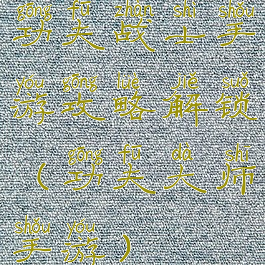 gōng fū zhàn shì shǒu
功夫战士手
yóu gōng luè jiě suǒ
游攻略解锁
gōng fū dà shī
（功夫大师
shǒu yóu
手游）